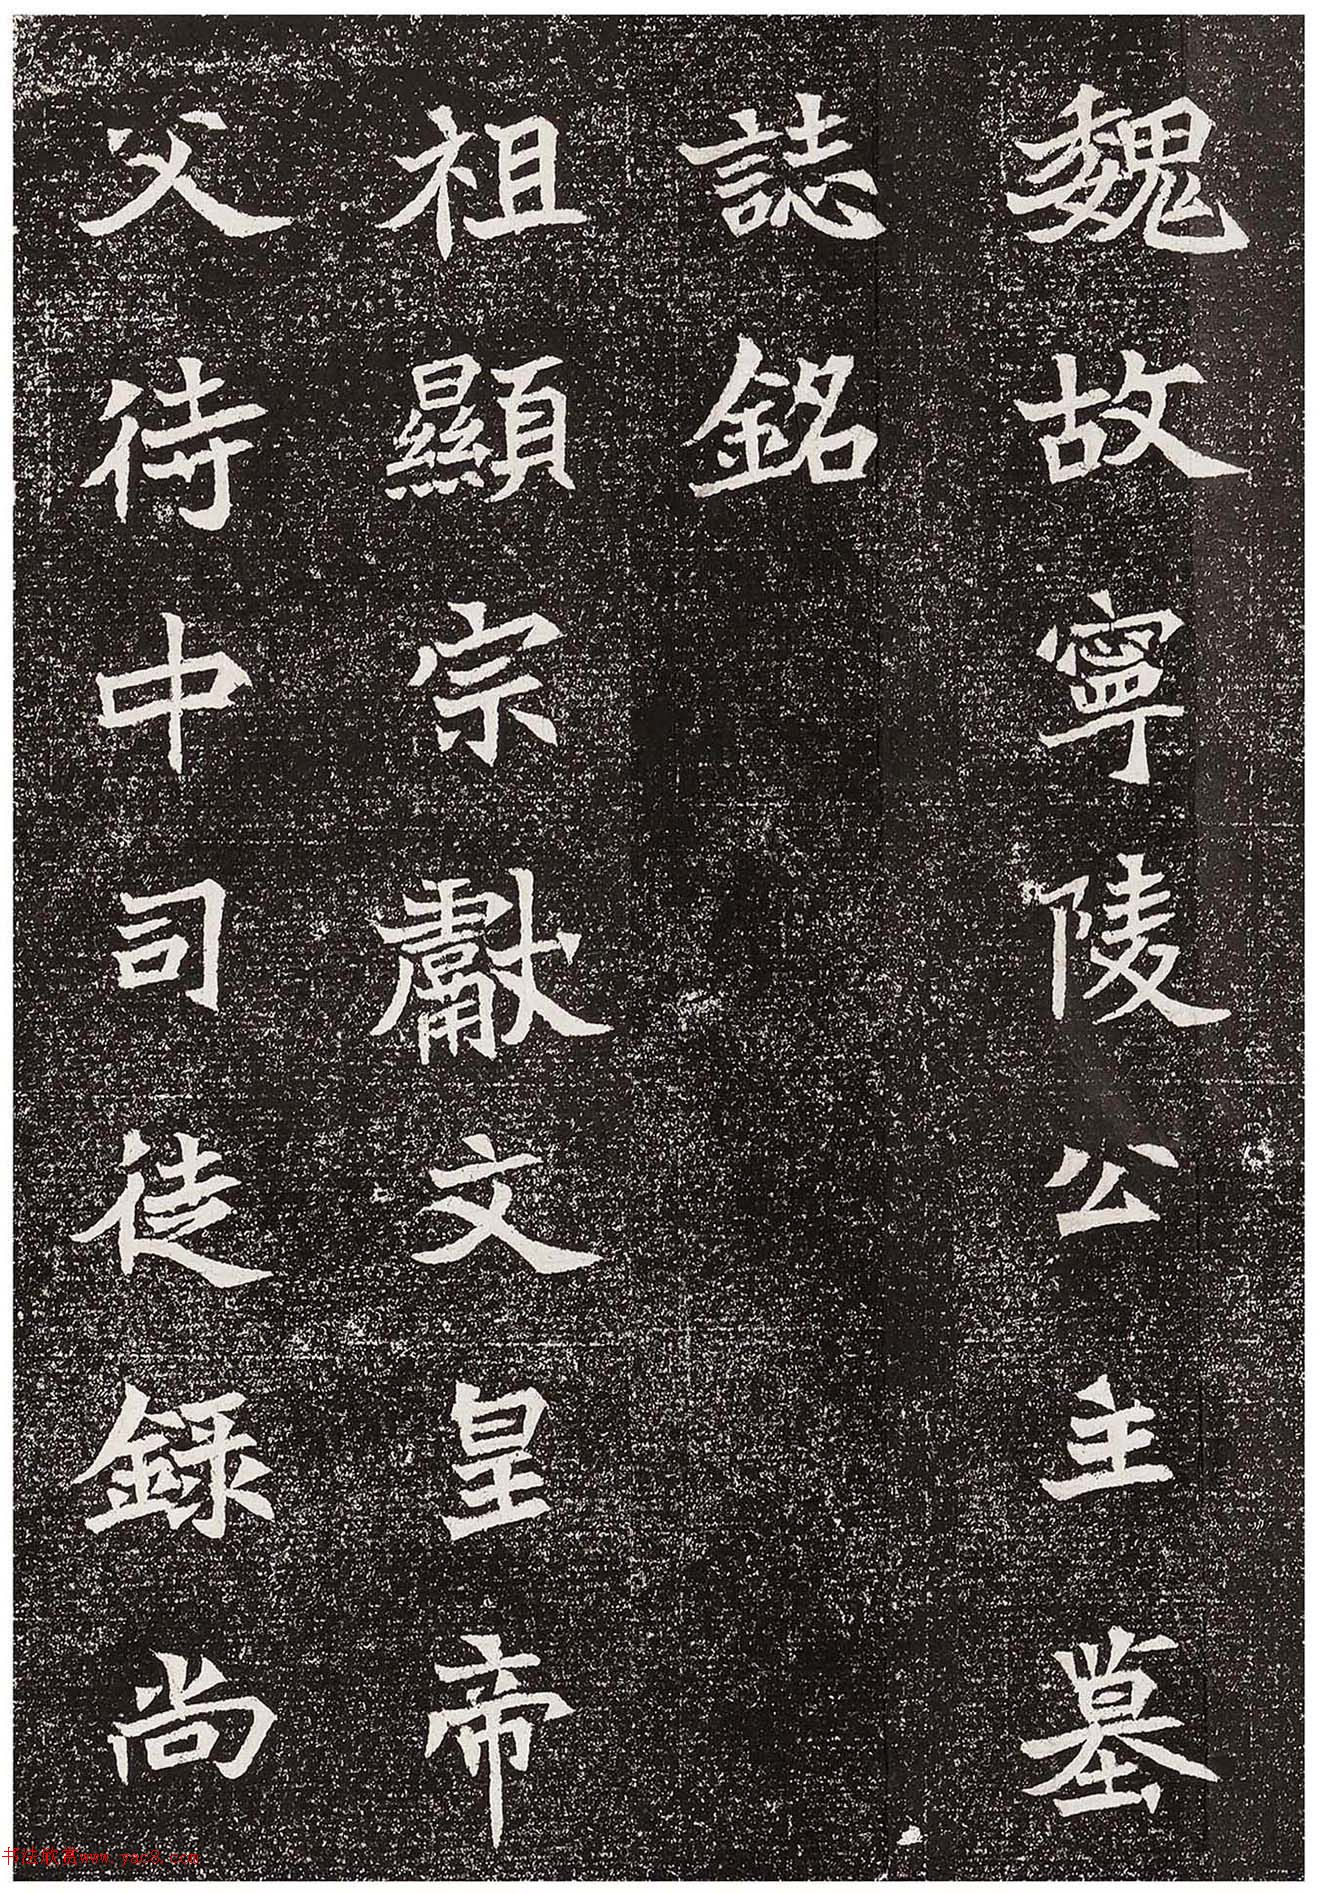 魏故寧陵公主墓
誌銘
祖顯宗獻文皇帝
父待中司徒録尚
书法欣赏www.yac8.com